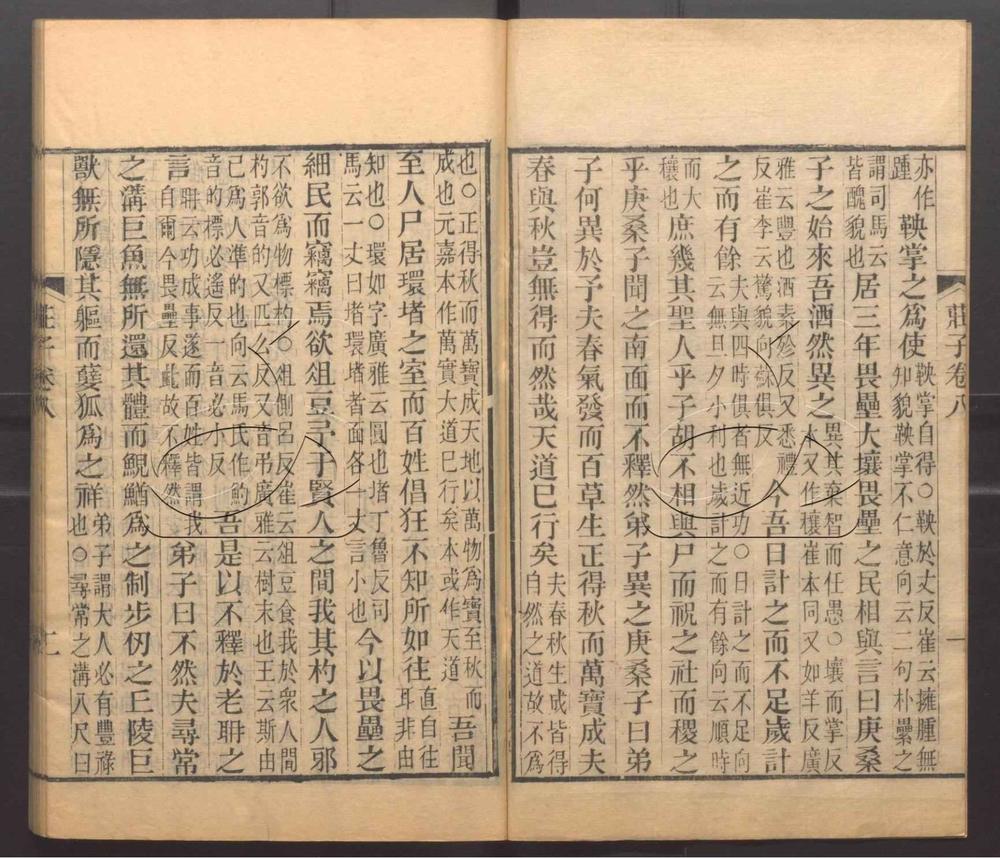 亦作
踵
鞅掌之爲使
鞅掌自得○鞅於丈反崔云擁腫無
知貌鞅掌不仁意向云二句朴纍之
謂司馬云
皆醜貌也
居三年畏壘大壤畏壘之民相與言曰庚桑
子之始來吾洒然異之
異其棄智而任愚○壤而掌反
本又作穰崔本同又如羊反廣
雅云豐也洒素殄反又悉禮
反崔李云驚貌向蘇俱反
今吾日計之而不足歲計
之而有餘
夫與四時俱者無近功○日計之而不足向
云無旦夕小利也歲計之而有餘向云順時
而大
穰也
庶幾其聖人乎子胡不相與尸而祝之社而稷之
乎庚桑子聞之南面而不釋然弟子異之庚桑子曰弟
子何異於予夫春氣發而百草生正得秋而萬寶成夫
春與秋豈無得而然哉天道已行矣
夫春秋生成皆得
自然之道故不爲
莊子卷八
一
也○正得秋而萬寶成天地以萬物爲寶至秋而
成也元嘉本作萬實大道已行矣本或作天道
吾聞
至人尸居環堵之室而百姓倡狂不知所如往
直自往
耳非由
知也○環如字廣雅云圓也堵丁魯反司
馬云一丈曰堵環堵者面各一丈言小也
今以畏壘之
細民而竊竊焉欲俎豆予于賢人之間我其杓之人邪
不欲爲物標杓○俎側呂反崔云俎豆食我於衆人間
杓郭音的又匹么反又音弔廣雅云樹末也王云斯由
己爲人準的也向云馬氏作魡
音的標必遙反一音必小反
吾是以不釋於老聃之
言
聃云功成事遂而百姓皆謂我
自爾今畏壘反此故不釋然
弟子曰不然夫尋常
之溝巨魚無所還其體而鯢鰌爲之制步仞之丘陵巨
獸無所隱其軀而㜸狐爲之祥
弟子謂大人必有豐祿
也○尋常之溝八尺曰
莊子卷八